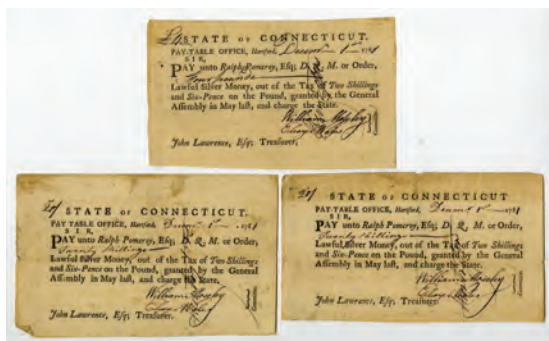 £4 STATE OF CONNECTICUT.
PAY-TABLE OFFICE, Hartford, Decemr 1st 1781
SIR,
PAY unto Ralph Pomeroy, Esq; D. Q. M. or Order,
Four pounds
Lawful Silver Money, out of the Tax of Two Shillings
and Six-Pence on the Pound, granted by the General
Assembly in May last, and charge the State.
William Moseley
John Lawrence, Esq; Treasurer.
20/ STATE OF CONNECTICUT.
PAY-TABLE OFFICE, Hartford, Decemr 1st 1781
SIR,
PAY unto Ralph Pomeroy, Esq; D. Q. M. or Order,
Twenty shillings
Lawful Silver Money, out of the Tax of Two Shillings
and Six-Pence on the Pound, granted by the General
Assembly in May last, and charge the State.
William Moseley
John Lawrence, Esq; Treasurer.
20/ STATE OF CONNECTICUT
PAY-TABLE OFFICE, Hartford, Decemr 1st 1781
SIR,
PAY unto Ralph Pomeroy, Esq; D. Q. M. or Order,
Twenty shillings
Lawful Silver Money, out of the Tax of Two Shillings
and Six-Pence on the Pound, granted by the General
Assembly in May last, and charge the State.
William Moseley
John Lawrence, Esq; Treasurer.